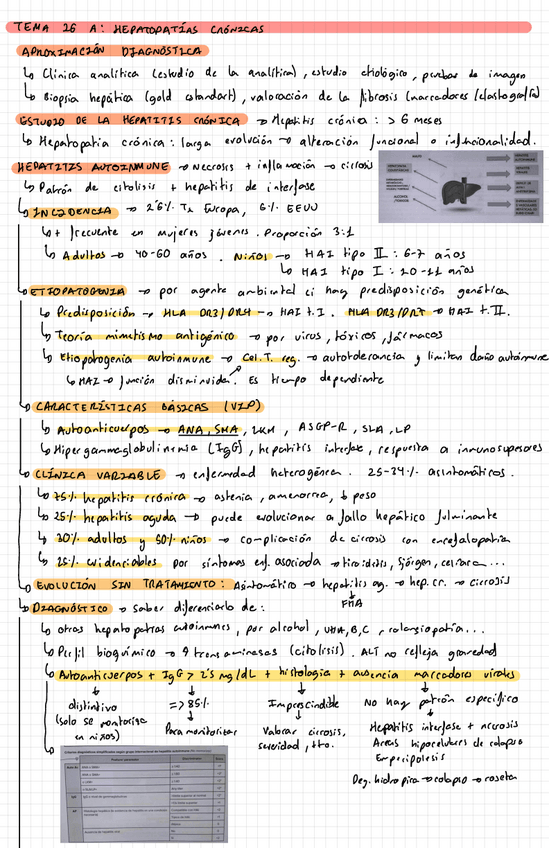 TEMA 26 A: HEPATOPATÍAS CRÓNICAS
APROXIMACIÓN DIAGNÓSTICA
↳ Clínica analítica (estudio de la analítica), estudio etiológico, pruebas de imagen
↳ Biopsia hepática (gold estandart), valoración de la fibrosis (marcadores/elastografía)
ESTUDIO DE LA HEPATITIS CRÓNICA → Hepatitis crónica: > 6 meses
↳ Hepatopatía crónica: larga evolución → alteración funcional o infuncionalidad.
HEPATITIS AUTOINMUNE → Necrosis + inflamación → cirrosis
↳ Patrón de citolisis + hepatitis de interfase
↳ INCIDENCIA → 2'6% Tx Europa, 6% EEUU
↳ + frecuente en mujeres jóvenes. Proporción 3:1
↳ Adultos → 40-60 años. Niños → HAI tipo II: 6-7 años
↳ HAI tipo I: 10-11 años
↳ ETIOPATOGENIA → por agente ambiental si hay predisposición genética
↳ Predisposición → HLA DR3/DR4 → HAI t.I. HLA DR3/DR7 → HAI t.II.
↳ Teoría mimetismo antigénico → por virus, tóxicos, fármacos
↳ Etiopatogenia autoinmune → Cel. T. reg. → autotolerancia y limitan daño autoinmune
↳ HAI → función disminuida. Es tiempo dependiente
↳ CARACTERÍSTICAS BÁSICAS (VIP)
↳ Autoanticuerpos → ANA, SMA, LKM, ASGP-R, SLA, LP
↳ Hipergammaglobulinemia (IgG), hepatitis interfase, respuesta a inmunosupesores
↳ CLÍNICA VARIABLE → enfermedad heterogénea. 25-34% asintomáticos.
↳ 75% hepatitis crónica → astenia, amenorrea, ↓ peso
↳ 25% hepatitis aguda → puede evolucionar a fallo hepático fulminante
↳ 30% adultos y 50% niños → complicación de cirrosis con encefalopatía
↳ 25% evidenciables por síntomas enf. asociada → tiroiditis, Sjörgen, celiaca...
↳ EVOLUCIÓN SIN TRATAMIENTO: Asintomático → hepatitis ag. → hep. cr. → cirrosis
↓
FHA
↳ DIAGNÓSTICO → saber diferenciarlo de:
↳ otras hepatopatías autoinmunes, por alcohol, VHA, B, C, colangiopatía...
↳ Perfil bioquímico → ↑ transaminasas (citolisis). ALT no refleja gravedad
↳ Autoanticuerpos + IgG > 2'5 mg/dL + histología + ausencia marcadores virales
distintivo => 85% Imprescindible No hay patrón específico
(solo se monitoriza en niños) Para monitorizar Valorar cirrosis, severidad, tto. Hepatitis interfase + necrosis
Areas hipocelulares de colapso
Emperipolesis
Deg. hidropira → colapso → roseta